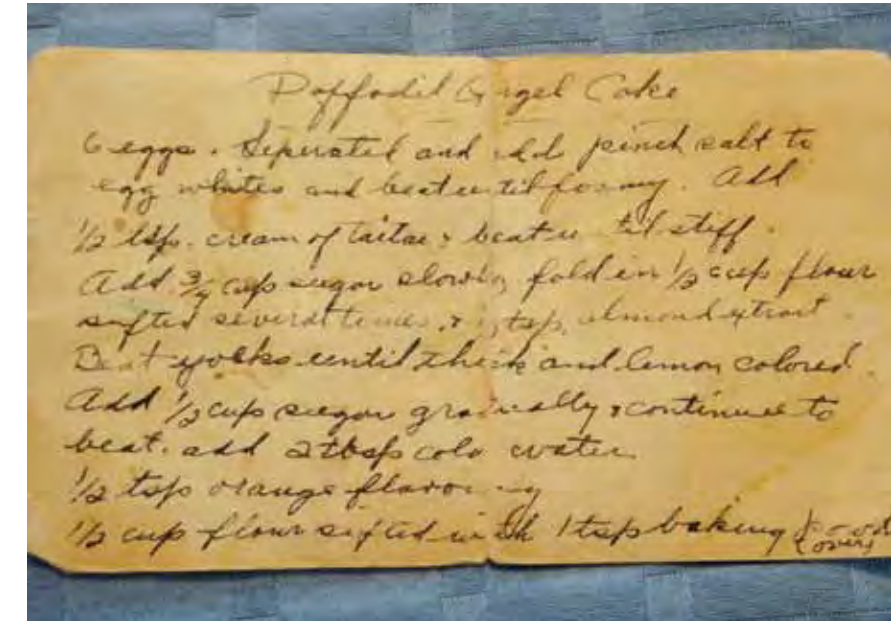 Daffodil Angel Cake
6 eggs. Seperated and add pinch salt to
egg whites and beat until foamy. Add
1/2 tsp. cream of tartar & beat until stiff.
Add 3/4 cup sugar slowly, fold in 1/2 cup flour
sifted several times, & tsp, almond extract.
Beat yolks until thick and lemon colored.
Add 1/2 cup sugar gradually & continue to
beat. add 2 tbsp cold water
1/2 tsp orange flavoring
1/2 cup flour sifted with 1 tsp baking
(over)